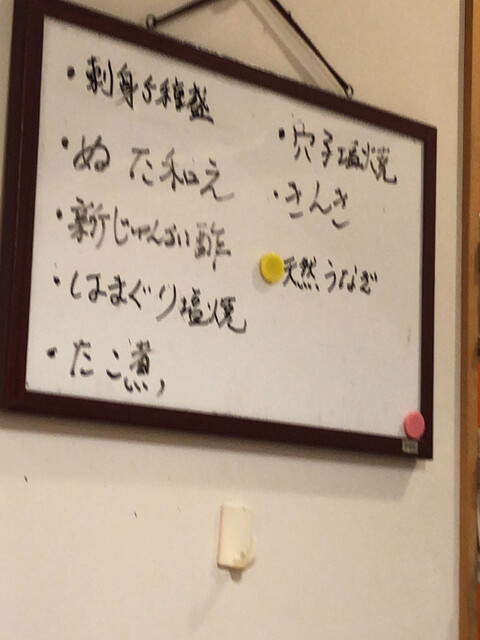 ・刺身5種盛
・ぬた和え
・新じゅんさい酢
・はまぐり塩焼
・たこ煮
・穴子塩焼
・きんき
天然うなぎ